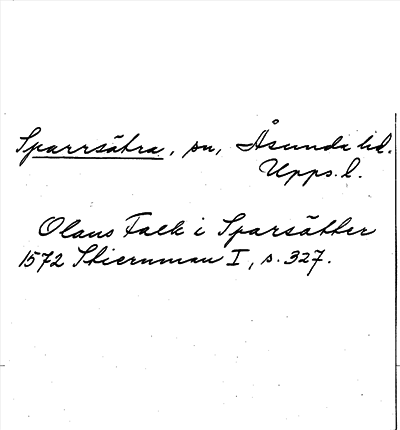 Sparrsätra, sn, Åsunda hd.
Upps. l.
Olaus Falk i Sparsätter
1572 Stiernman I, s. 327.